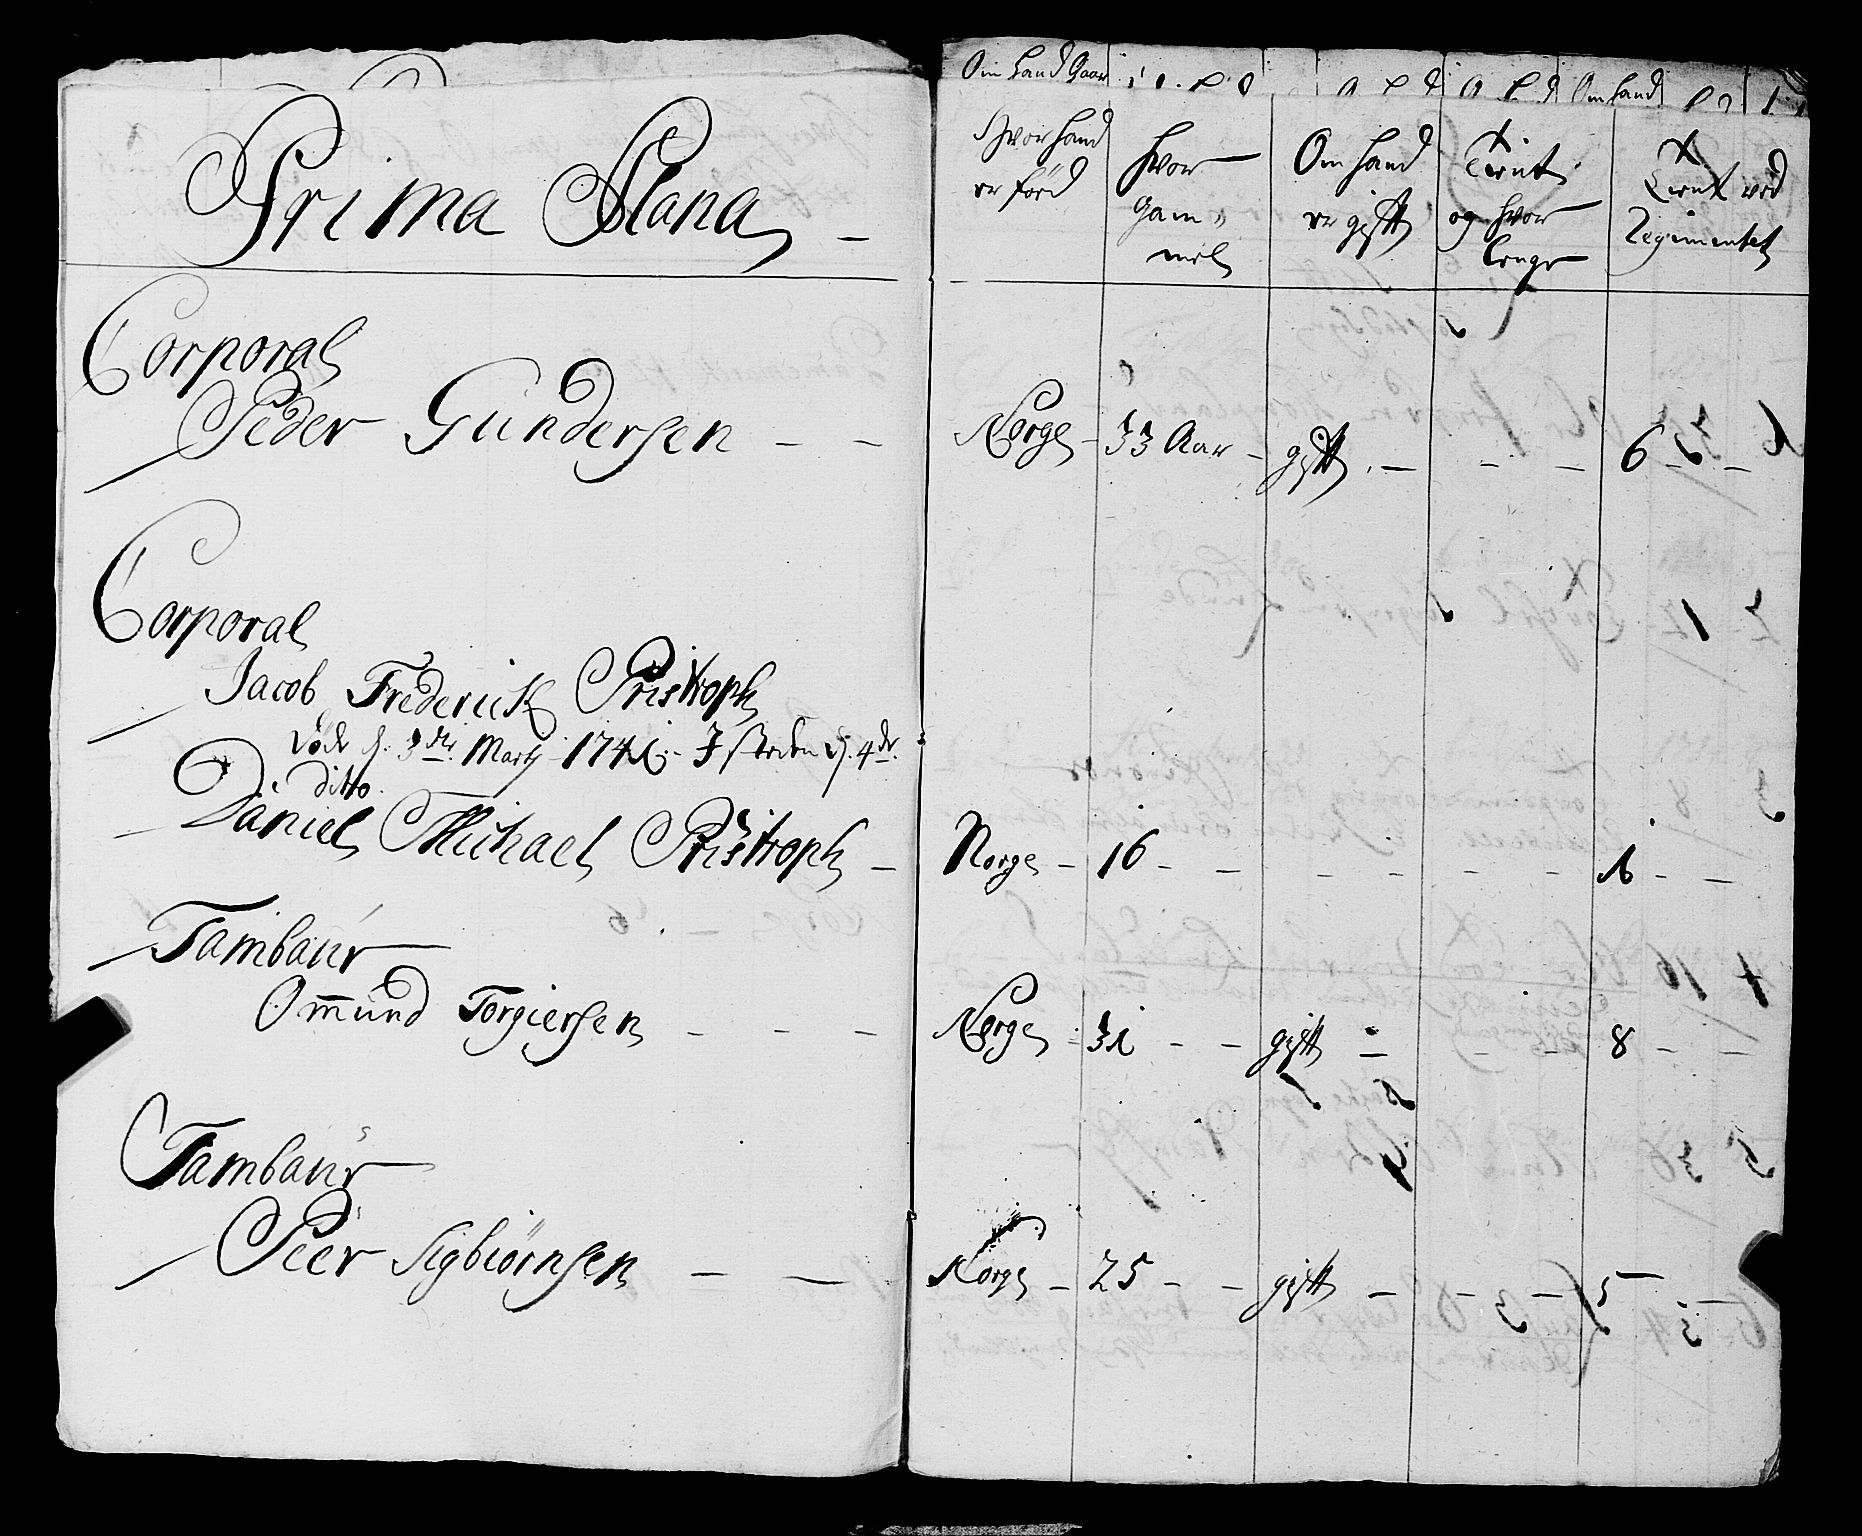 Om hand Gaar
Om hand
Prima Plana
Hvor hand er föed
Hvor Gam̅mel
Om hand er gift
Tient og hvor lenge
Tient ved Regimentet
Corporal
Peder Gundersen - - Norge - 33 Aar - gift - - - 6 - -
Corporal
Jacob Frederick Pristroph
döde d. 3die Marty 1741 - I steden d. 4de
ditto
Daniel Michael Pristroph - Norge - 16 - - - - - - 1 - -
Tambaur
Om̅und Torgiersen - - - Norge - 31 - - gift - - - 8 - -
Tambaur
Peer Sigbiörnsen - - Norge - 25 - - gift - - - 5 -